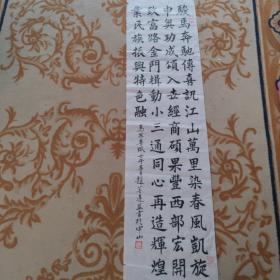 駿馬奔馳傳喜訊江山萬里染春風凱旋
申奧功成頌入世經商碩果豐西部宏開
致富路金門推動小三通同心再造輝煌
業民族振興特色融